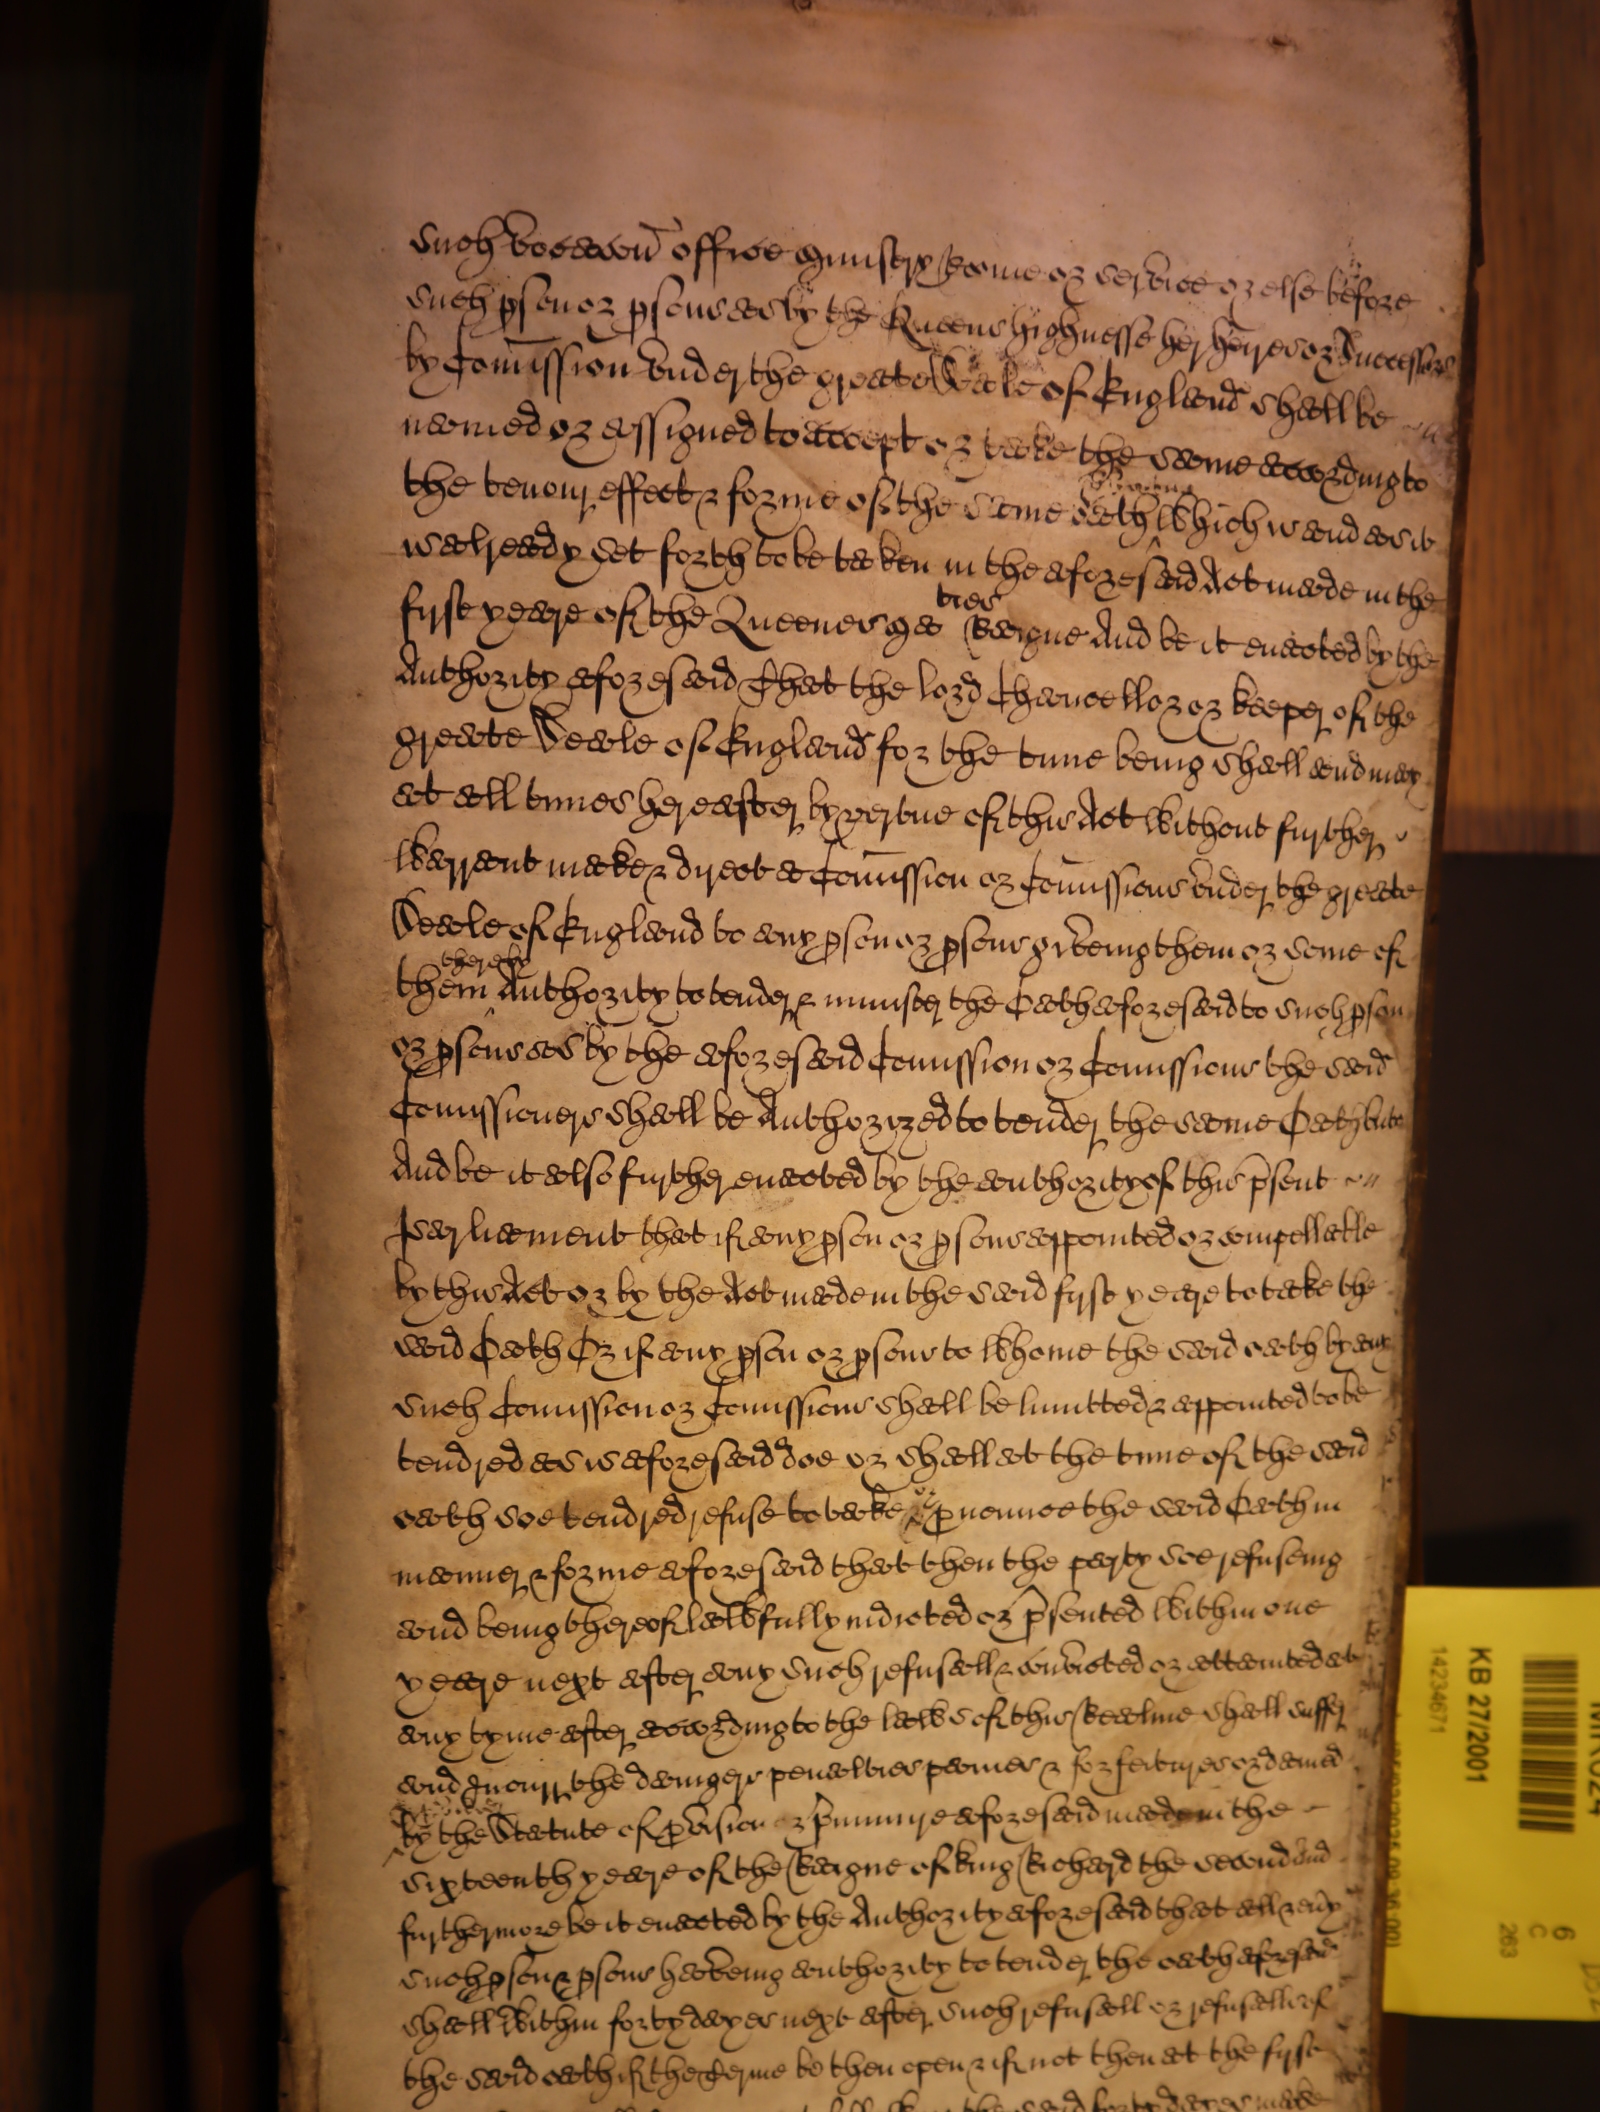 such vocacõn office ministry Roome or service or else before
such pson or psons as by the Queens highnesse her heires or Successors
by Com̃ission vnder the greate Seale of England shall be
named or assigned to accept or take the same according to
the tenour effect & forme of the same Oath which is and as it
is already set forth to be taken in the aforesaid Act made in the
first yeare of the Queenes Maties Raigne And be it enacted by the
Authority aforesaid That the lord Chancellor or keeper of the
greate Seale of England for the time being shall and may
at all times hereafter by vertue of this Act without further
Warrant make & direct a Com̃ission or Com̃issions vnder the greate
Seale of England to any pson or psons giveing them or some of
them thereby Authority to tender & minister the Oath aforesaid to such pson
or psons as by the aforesaid Comission or Comissions the said
Comissioners shall be Authorized to tender the same Oath vnto
And be it also further enacted by the authority of this p̃sent
Parliament that if any pson or psons appointed or compellable
by this Act or by the Act made in the said first yeare to take the
said Oath Or if any pson or psons to Whome the said oath by any
such Comission or Comissions shall be limitted & appointed to be
tendred as is aforesaid doe or shall at the time of the said
oath soe tendred refuse to take or pnounce the said Oath in
manner & forme aforesaid that then the party soe refuseing
and being thereof lawfully indicted or p̃sented within one
yeare next after any such refusall & convicted or attainted at
any tyme after according to the laws of this Realme shall suffer
and Incurr the dangers penalties paines & forfeitures ordained
by the Statute of pvision & p̃munire aforesaid made in the
sixteenth yeare of the Raigne of king Richard the second And
furthermore be it enacted by the Authority aforesaid that all & eṽy
such pson & psons haveing authority to tender the oath aforesaid
shall within forty dayes next after such refusall or refusalls of
the said oath if the Terme be then open & if not then at the first
the said forty dayes make
KB 27/2001
14234671
6
C
263